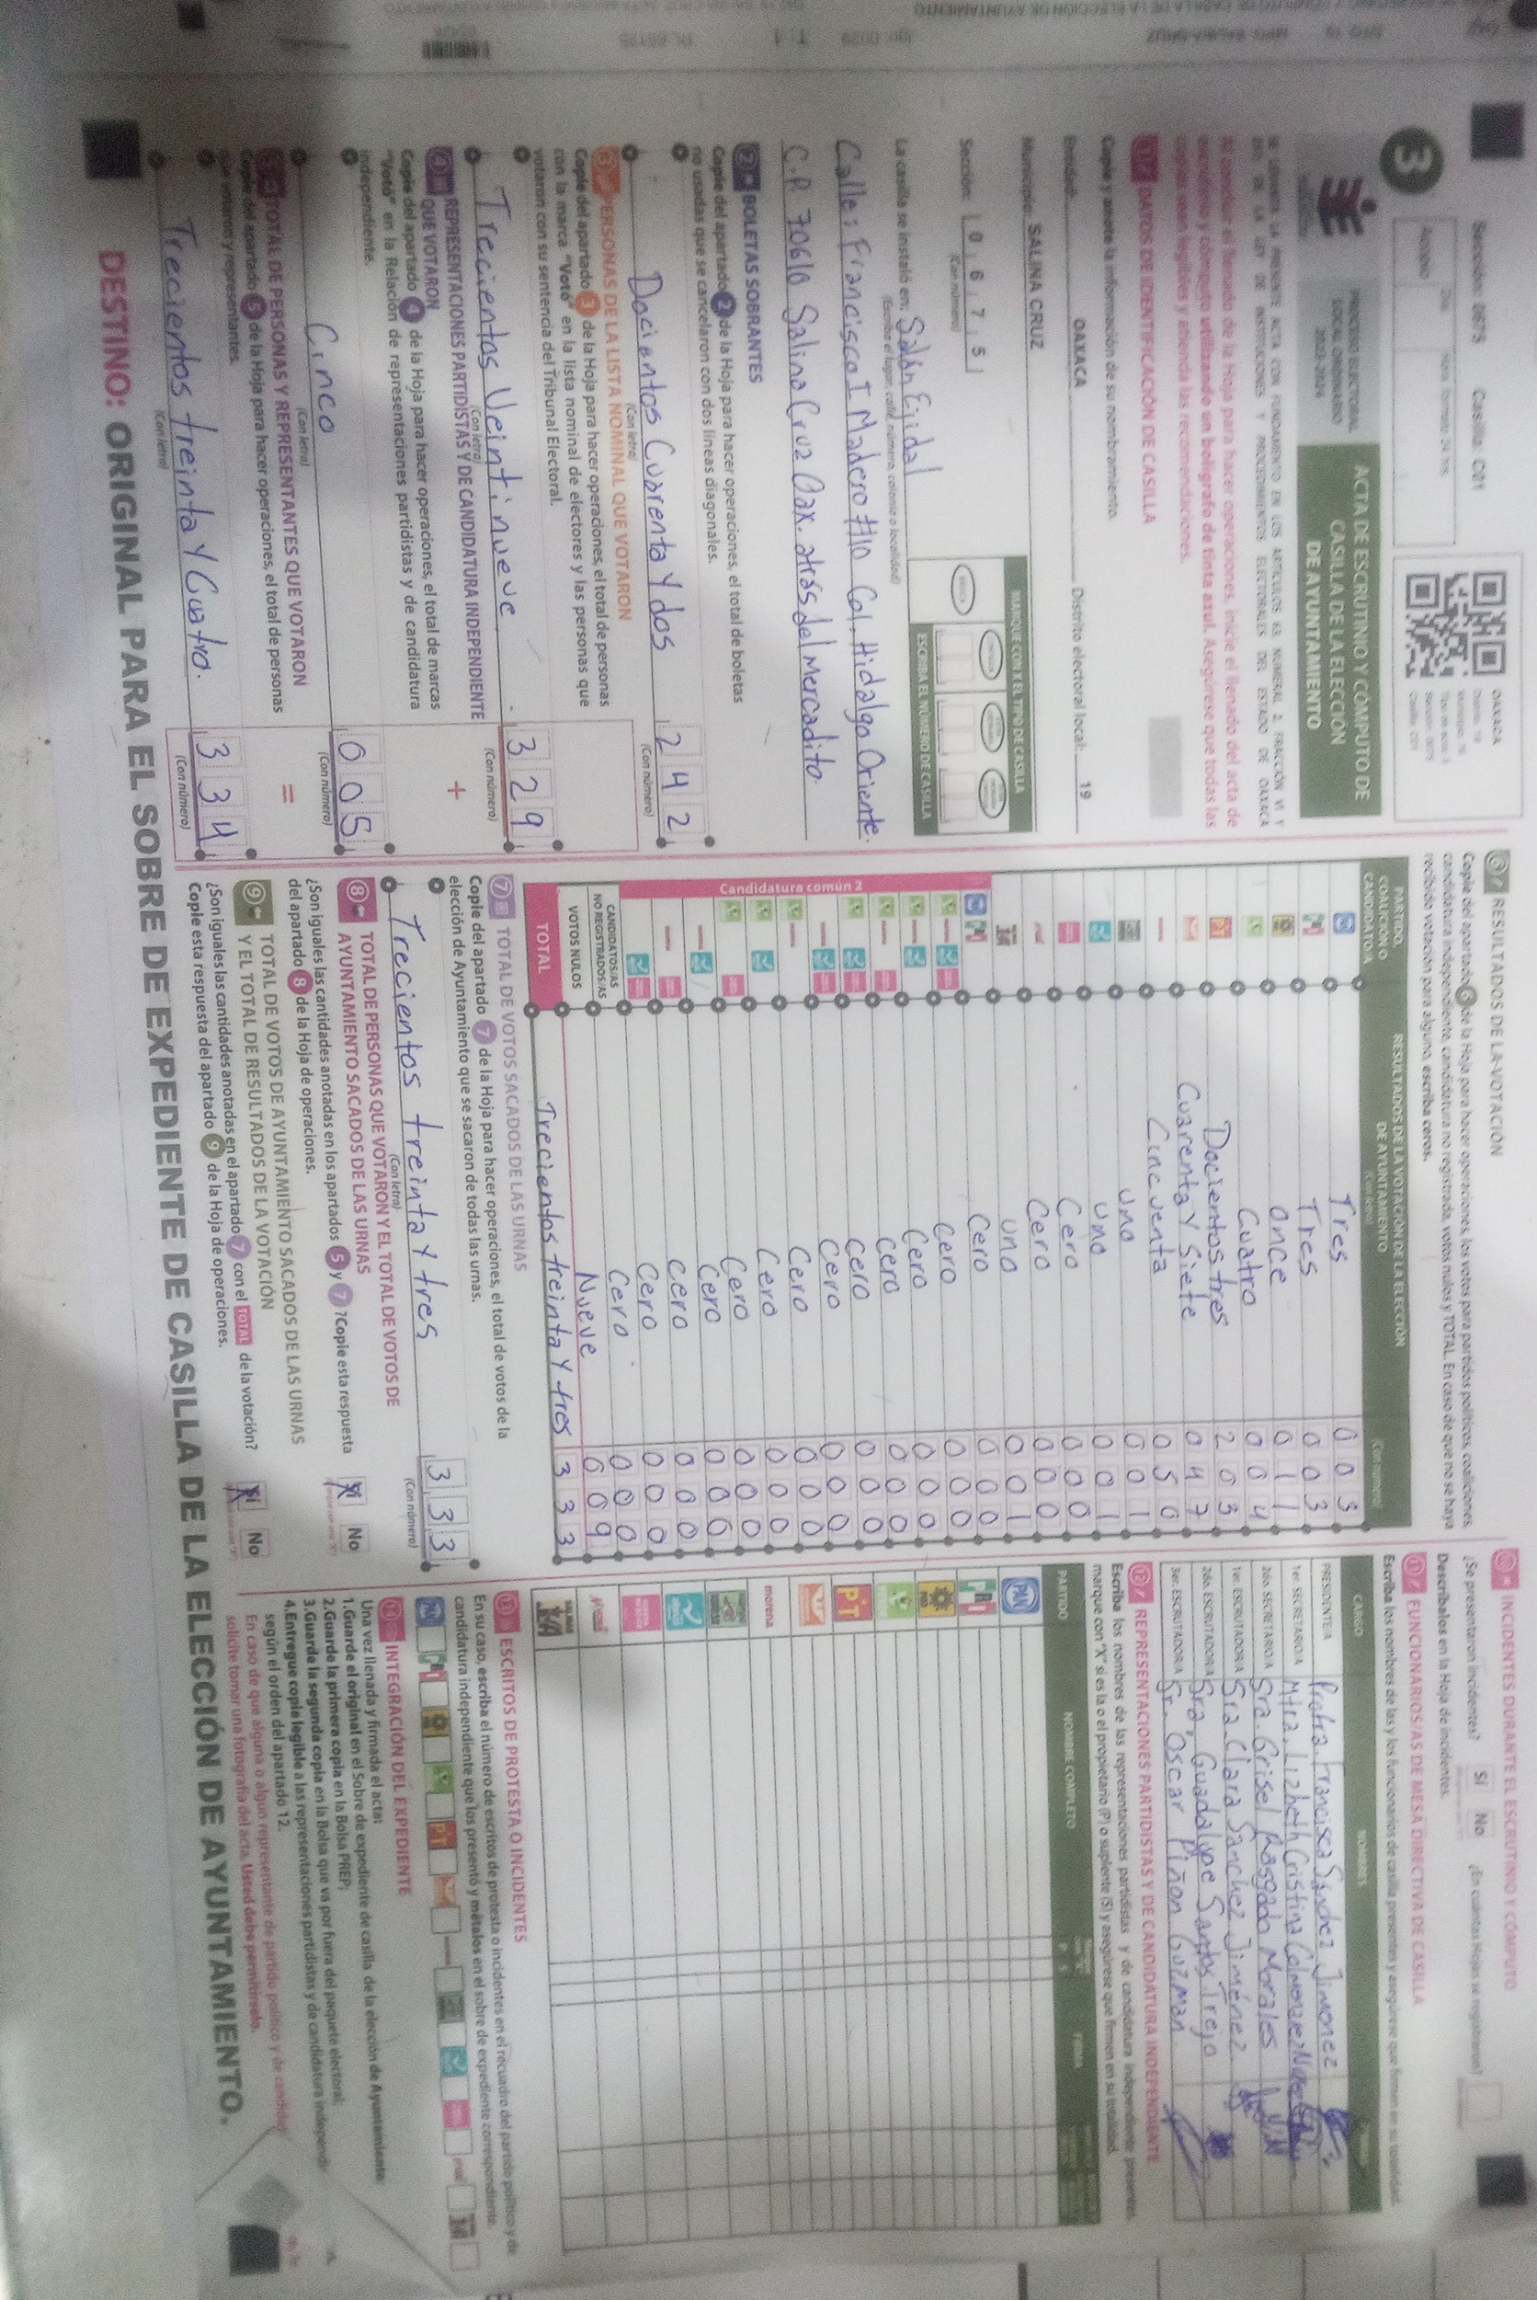 Sección: 0675 Casilla: C01
OAXACA
3
PROCESO ELECTORAL
LOCAL ORDINARIO
2023-2024
ACTA DE ESCRUTINIO Y CÓMPUTO DE
CASILLA DE LA ELECCIÓN
DE AYUNTAMIENTO
SE LEVANTA LA PRESENTE ACTA CON FUNDAMENTO EN LOS ARTÍCULOS 63, NUMERAL 2, FRACCIÓN VI Y
DE LA LEY DE INSTITUCIONES Y PROCEDIMIENTOS ELECTORALES DEL ESTADO DE OAXACA
Al concluir el llenado de la Hoja para hacer operaciones, inicie el llenado del acta de
escrutinio y cómputo utilizando un bolígrafo de tinta azul. Asegúrese que todas las
copias sean legibles y atienda las recomendaciones.
1 DATOS DE IDENTIFICACIÓN DE CASILLA
Copie y anote la información de su nombramiento.
Entidad: OAXACA Distrito electoral local: 19
Municipio: SALINA CRUZ
Sección: 0675
(Con número)
MARQUE CON X EL TIPO DE CASILLA
ESCRIBA EL NÚMERO DE CASILLA
La casilla se instaló en: Salón Ejidal
(Escriba el lugar, calle, número, colonia o localidad)
Calle: Francisco I. Madero #10 Col. Hidalgo Oriente.
C.P. 70610 Salina Cruz Oax. atrás del Mercadito.
2 BOLETAS SOBRANTES
Copie del apartado 2 de la Hoja para hacer operaciones, el total de boletas
no usadas que se cancelaron con dos líneas diagonales.
Docientos Cuarenta y dos 242
(Con letra) (Con número)
3 PERSONAS DE LA LISTA NOMINAL QUE VOTARON
Copie del apartado 3 de la Hoja para hacer operaciones, el total de personas
con la marca "Votó" en la lista nominal de electores y las personas que
votaron con su sentencia del Tribunal Electoral.
Trecientos Veintinueve. 329
(Con letra) (Con número)
4 REPRESENTACIONES PARTIDISTAS Y DE CANDIDATURA INDEPENDIENTE
QUE VOTARON
+
Copie del apartado 4 de la Hoja para hacer operaciones, el total de marcas
"Votó" en la Relación de representaciones partidistas y de candidatura
independiente.
Cinco 005
(Con letra) (Con número)
5 TOTAL DE PERSONAS Y REPRESENTANTES QUE VOTARON
=
Copie del apartado 5 de la Hoja para hacer operaciones, el total de personas
que votaron y representantes.
Trecientos treinta y Cuatro. 334
(Con letra) (Con número)
6 RESULTADOS DE LA VOTACIÓN
Copie del apartado 6 de la Hoja para hacer operaciones, los votos para partidos políticos, coaliciones,
candidatura independiente, candidatura no registrada, votos nulos y TOTAL. En caso de que no se haya
recibido votación para alguno, escriba ceros.
PARTIDO,
COALICIÓN O
CANDIDATO/A
RESULTADOS DE LA VOTACIÓN DE LA ELECCIÓN
DE AYUNTAMIENTO
(Con letra) (Con número)
Tres 003
Tres 003
once 011
Cuatro 004
Docientos tres 203
Cuarenta y Siete 047
Cincuenta 050
uno 001
uno 001
Cero 000
Cero 000
uno 001
Cero 000
Candidatura común 2
Cero 000
Cero 000
Cero 000
Cero 000
Cero 000
Cero 000
Cero 000
Cero 000
Cero 000
Cero 000
Cero 000
CANDIDATOS/AS
NO REGISTRADOS/AS Cero. 000
VOTOS NULOS Nueve 009
TOTAL Trecientos treinta y tres 333
7 TOTAL DE VOTOS SACADOS DE LAS URNAS
Copie del apartado 7 de la Hoja para hacer operaciones, el total de votos de la
elección de Ayuntamiento que se sacaron de todas las urnas.
Trecientos treinta y tres 333
(Con letra) (Con número)
8 TOTAL DE PERSONAS QUE VOTARON Y EL TOTAL DE VOTOS DE
AYUNTAMIENTO SACADOS DE LAS URNAS
¿Son iguales las cantidades anotadas en los apartados 5 y 7? Copie esta respuesta
del apartado 8 de la Hoja de operaciones.
Sí No
9 TOTAL DE VOTOS DE AYUNTAMIENTO SACADOS DE LAS URNAS
Y EL TOTAL DE RESULTADOS DE LA VOTACIÓN
¿Son iguales las cantidades anotadas en el apartado 7 con el TOTAL de la votación?
Copie esta respuesta del apartado 9 de la Hoja de operaciones.
Sí No
10 INCIDENTES DURANTE EL ESCRUTINIO Y CÓMPUTO
¿Se presentaron incidentes? Sí No ¿En cuántas Hojas se registraron?
Descríbalos en la Hoja de incidentes.
11 FUNCIONARIOS/AS DE MESA DIRECTIVA DE CASILLA
Escriba los nombres de las y los funcionarios de casilla presentes y asegúrese que firmen en su totalidad.
CARGO NOMBRES
PRESIDENTE/A Profra. Francisca Sánchez Jimenez
1er. SECRETARIO/A Mtra. Lizbeth Cristina
2do. SECRETARIO/A Sra. Grisel Rasgado Morales
1er. ESCRUTADOR/A Sra Clara Sanchez Jiménez
2do. ESCRUTADOR/A Sra. Guadalupe Santos Trejo
3er. ESCRUTADOR/A Sr. Oscar Piñon Guzman
12 REPRESENTACIONES PARTIDISTAS Y DE CANDIDATURA INDEPENDIENTE
Escriba los nombres de las representaciones partidistas y de candidatura independiente presentes,
marque con "X" si es la o el propietario (P) o suplente (S) y asegúrese que firmen en su totalidad.
PARTIDO NOMBRE COMPLETO FIRMA
PAN
PRI
PRD
PT
morena
13 ESCRITOS DE PROTESTA O INCIDENTES
En su caso, escriba el número de escritos de protesta o incidentes en el recuadro del partido político y de
candidatura independiente que los presentó y métalos en el sobre de expediente correspondiente.
14 INTEGRACIÓN DEL EXPEDIENTE
Una vez llenada y firmada el acta:
1.Guarde el original en el Sobre de expediente de casilla de la elección de Ayuntamiento
2.Guarde la primera copia en la Bolsa PREP;
3.Guarde la segunda copia en la Bolsa que va por fuera del paquete electoral;
4.Entregue copia legible a las representaciones partidistas y de candidatura independiente
según el orden del apartado 12.
En caso de que alguna o algún representante de partido político y de candidatura
solicite tomar una fotografía del acta, Usted debe permitírselo.
DESTINO: ORIGINAL PARA EL SOBRE DE EXPEDIENTE DE CASILLA DE LA ELECCIÓN DE AYUNTAMIENTO.